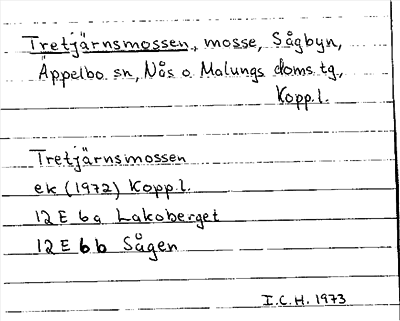 Tretjärnsmossen, mosse, Sågbyn,
Äppelbo sn, Nås o. Malungs doms.tg.,
Kopp.l.
Tretjärnsmossen
ek (1972) Kopp.l.
12 E 6a Lakoberget
12 E 6b Sågen
I.C.H. 1973